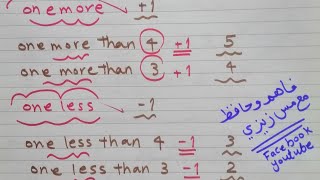 one more +1
one more than 4 +1 5
one more than 3 +1 4
one less -1
one less than 4 -1 3
one less than 3 -1 2
فاهم وحافظ
مع مس زيزي
Facebook
youtube